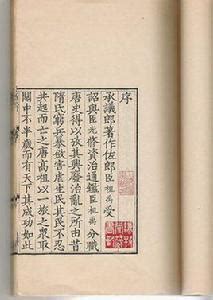 序
承議郎著作佐郎臣祖禹受
詔與臣光修資治通鑑臣祖禹分職
唐史得以攷其興廢治亂之所由昔
隋氏窮兵暴斂害虐生民其民不忍
共起而亡之唐高祖以一旅之衆取
關中不半歲而有天下其成功如此